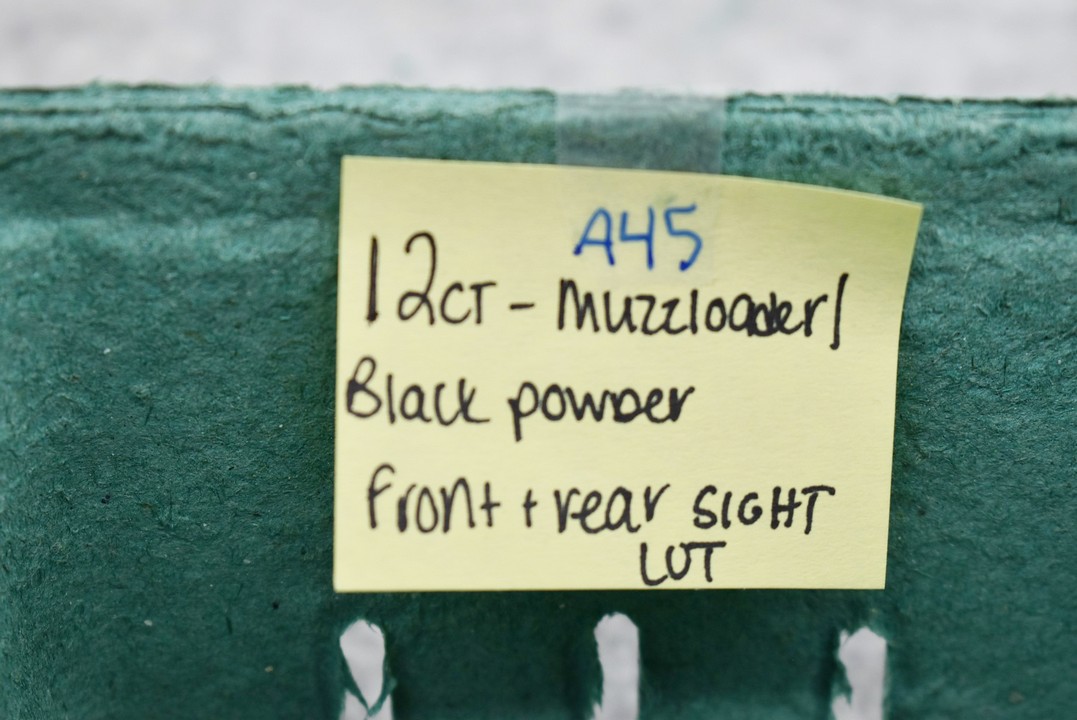 A45
12CT - Muzzloader/
Black powder
front + rear SIGHT
LOT